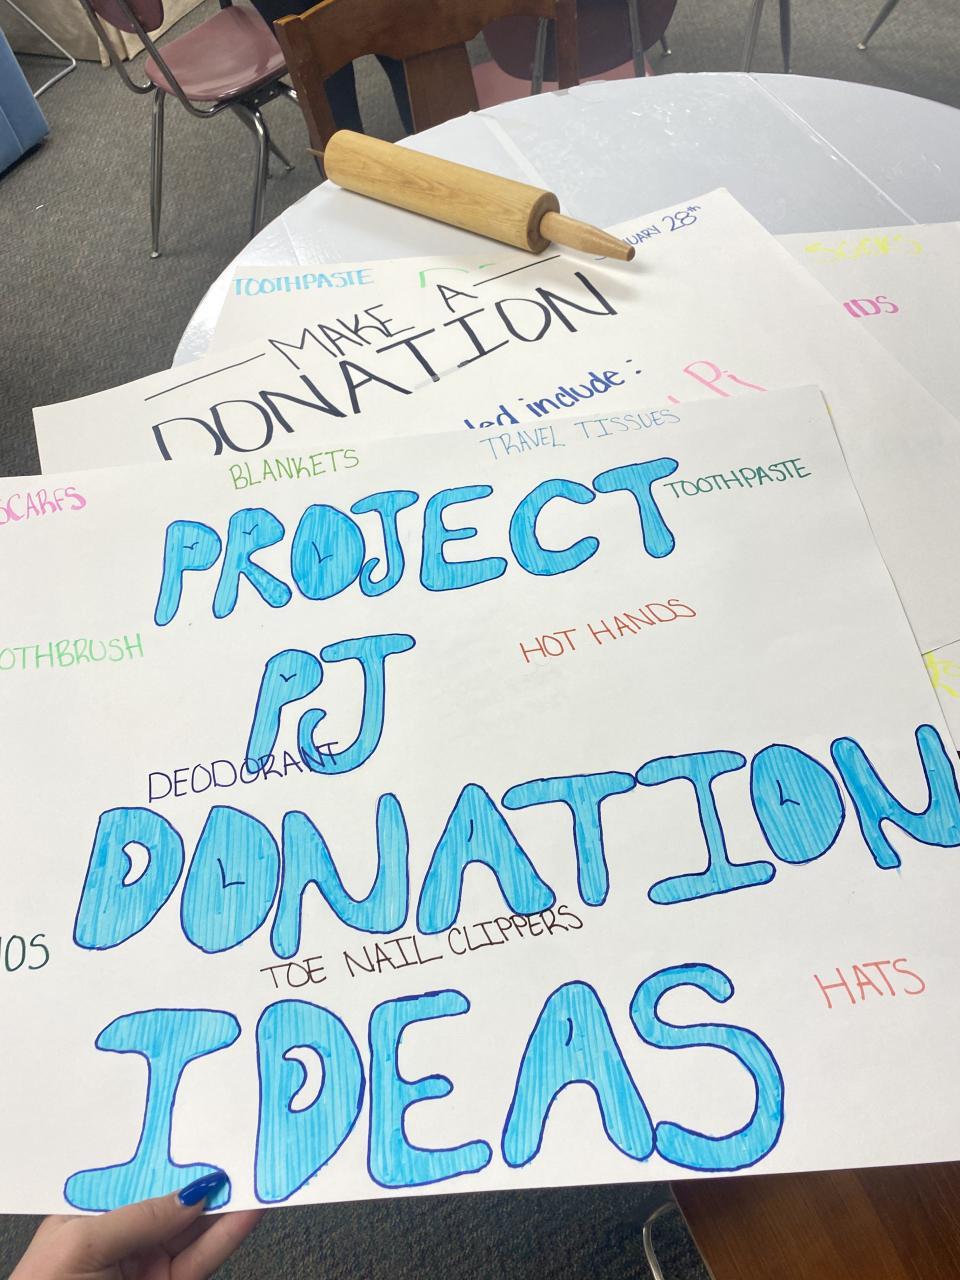 SOCKS
28th
TOOTHPASTE
MAKE A
DONATION
include:
Pi
SCARFS
BLANKETS
TRAVEL TISSUES
TOOTHPASTE
PROJECT
HOT HANDS
PJ
DEODORANT
DONATION
TOE NAIL CLIPPERS
HATS
IDEAS